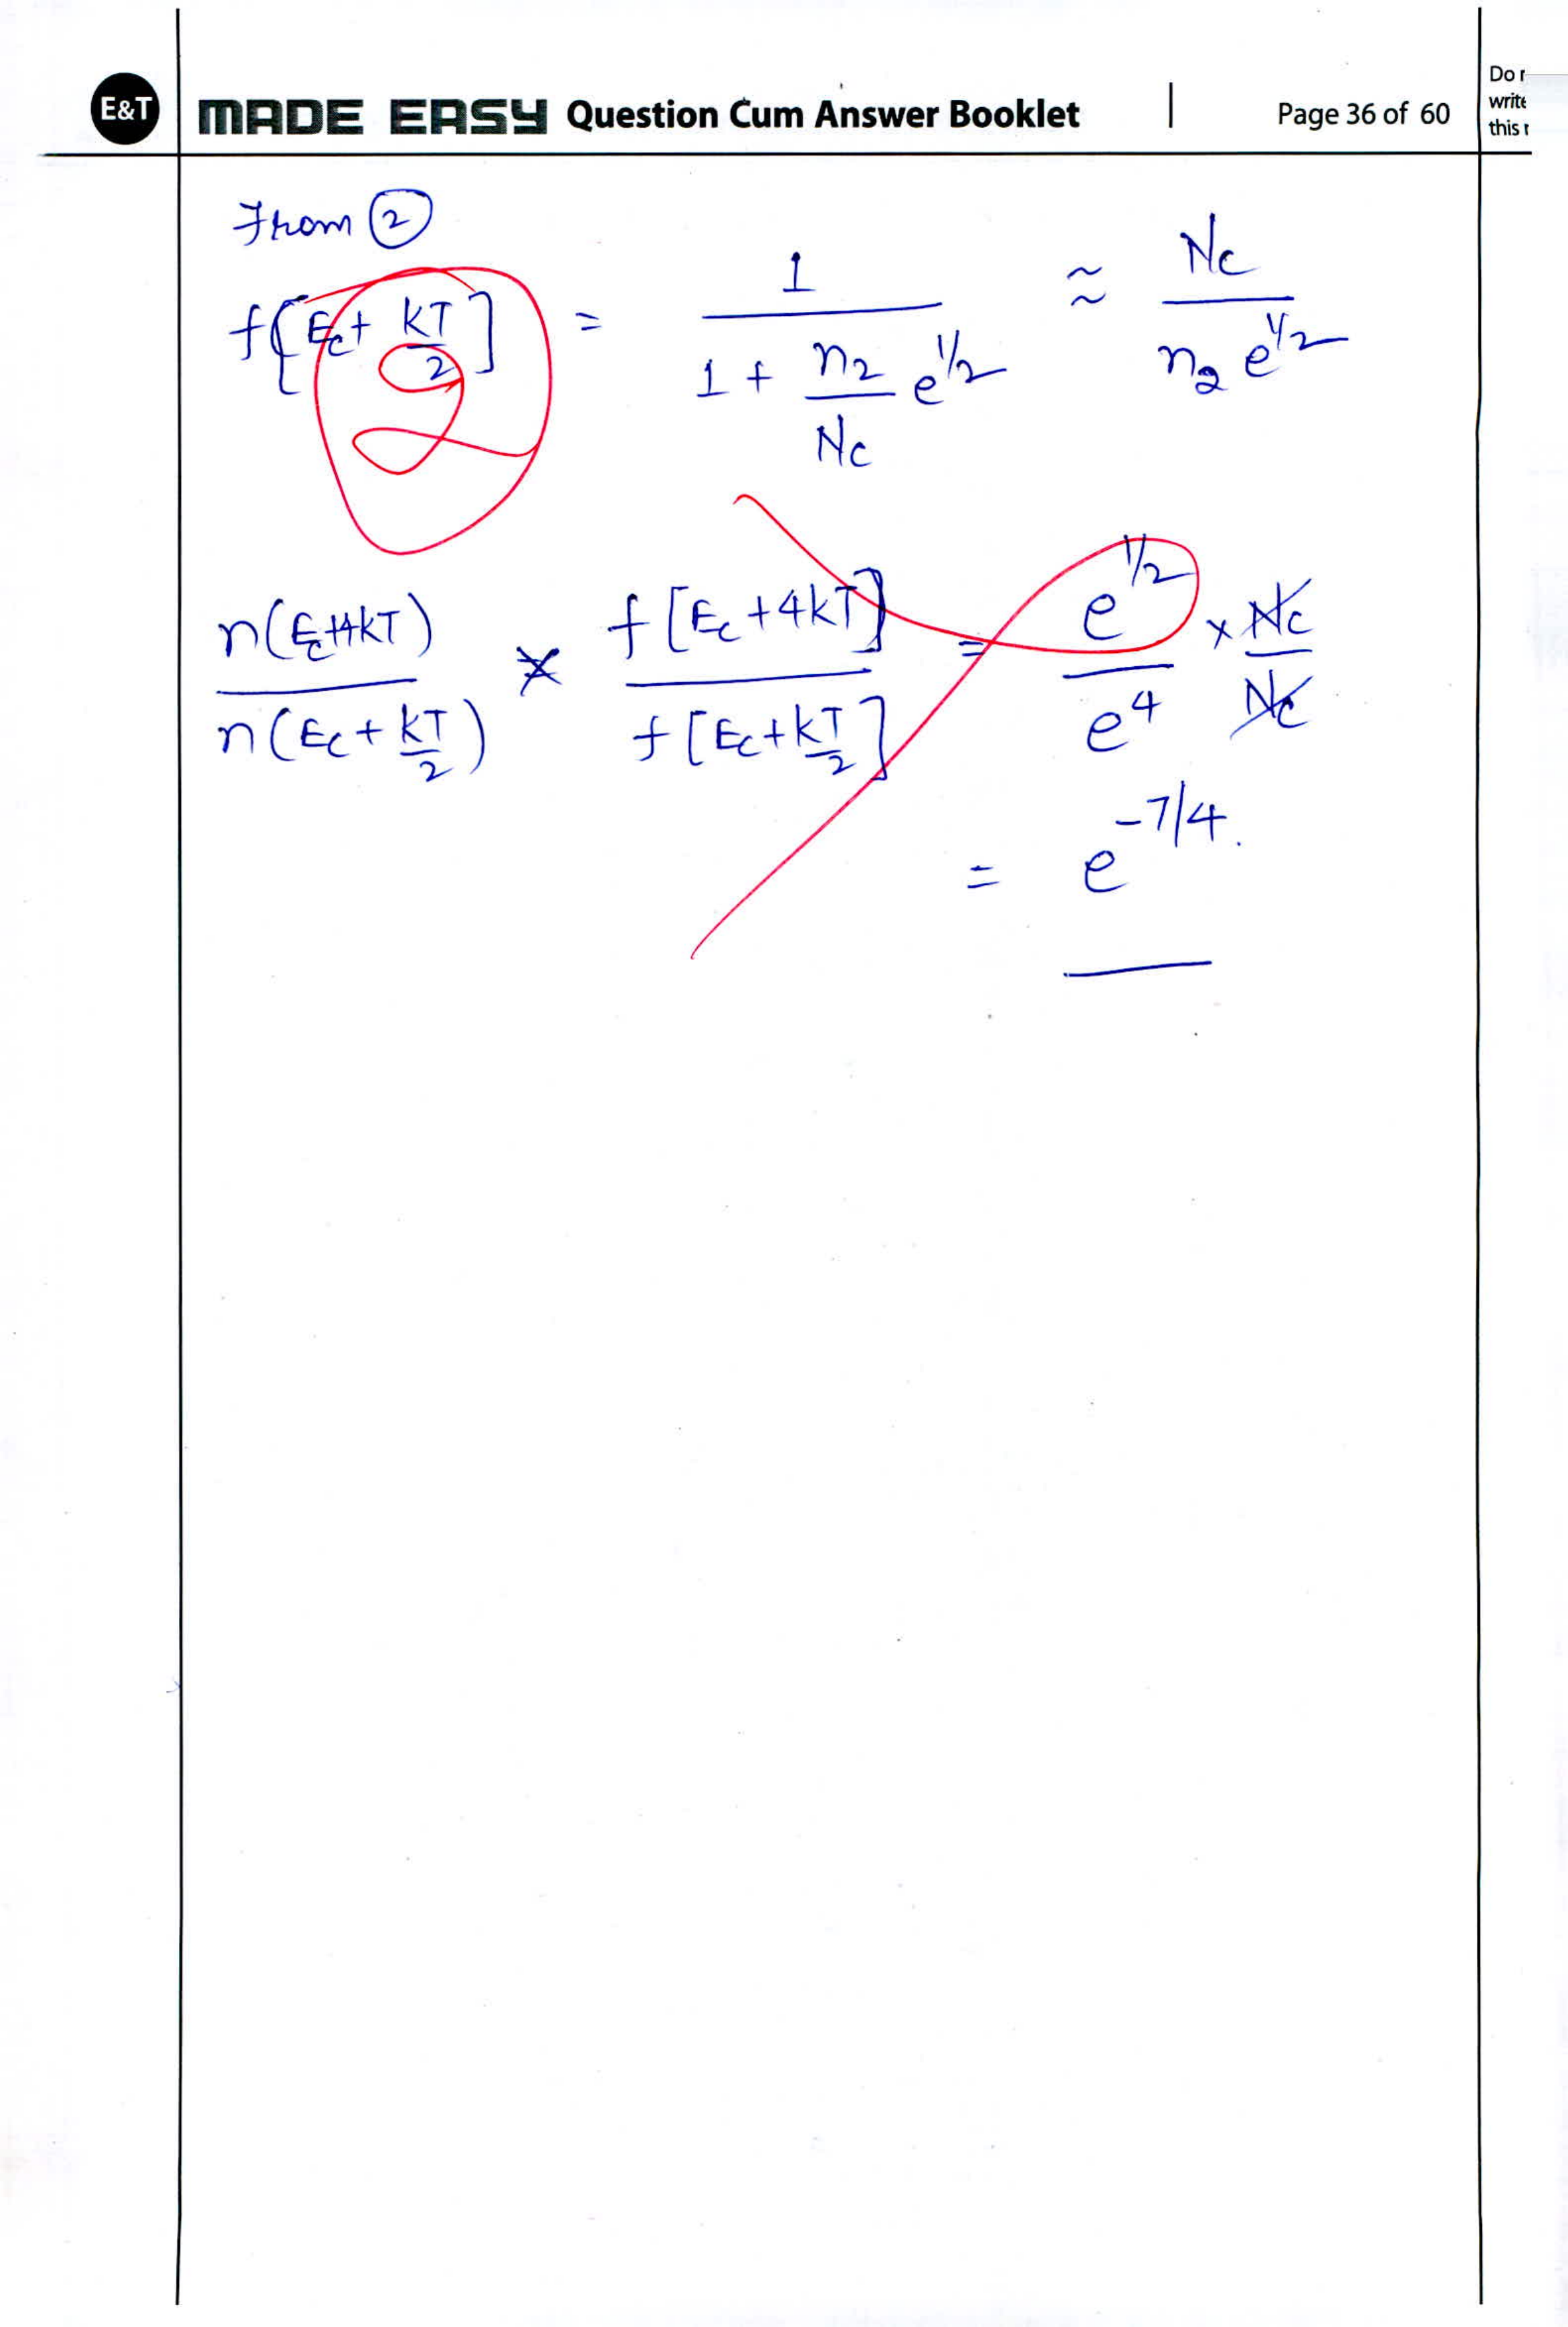 E&T MADE EASY Question Cum Answer Booklet | Page 36 of 60
Do
write
this
From ②
f[Ec + kT/2] = 1/(1 + n2/Nc e^1/2) ≈ Nc/(n2 e^1/2)
2
n(Ec+4kT)/n(Ec + kT/2) * f[Ec + 4kT]/f[Ec + kT/2] = e^1/2/e^4 × Nc/Nc
= e^-7/4.